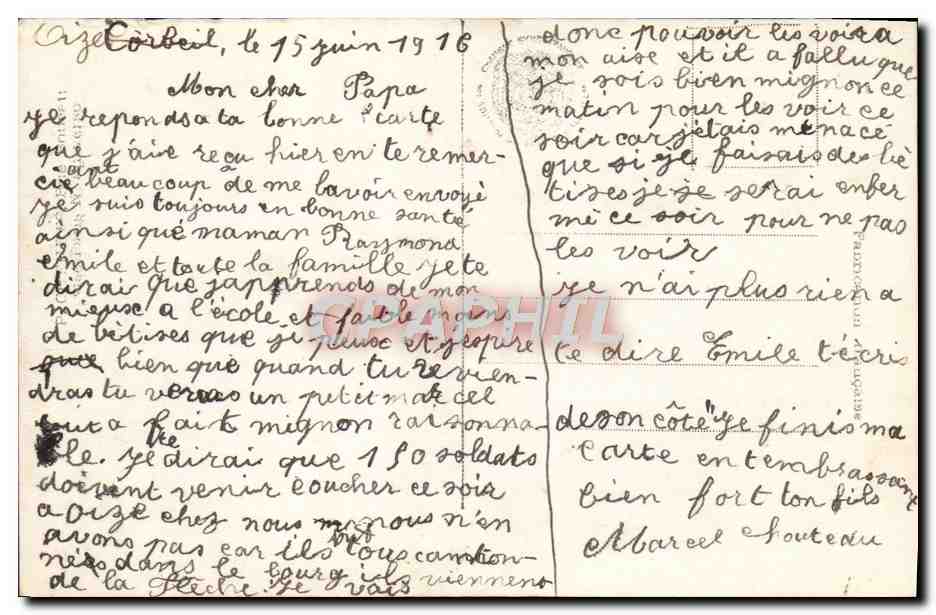 Oizé Corbeil, le 15 juin 1916
Mon cher Papa
je reponds a ta bonne carte
que j'aie reçu hier en te remer-
ciant beaucoup de me lavoir envoyé
je suis toujours en bonne santé
ainsi que maman Raymond
emile et toute la famille je te
dirai que j'apprends de mon
mieux a l'école et fait le moins
de bêtises que je peux et j'espère
que bien que quand tu revien-
dras tu verras un petit marcel
tout a fait mignon raisonna-
ble. je te dirai que 150 soldats
doivent venir coucher ce soir
a Oizé chez nous nous n'en
avons pas car ils sont tous canton-
nés dans le bourg ils viennent
de la Flèche. je vais
donc pouvoir les voir a
mon aise et il a fallu que
je sois bien mignon ce
matin pour les voir ce
soir car jetais menacé
que si je faisais des bê
tises je se serai enfer
mé ce soir pour ne pas
les voir
je n'ai plus rien a
te dire Emile t'écris
de son côté je finis ma
carte en tembrassant
bien fort ton fils
Marcel Chouteau
CPAPHIL